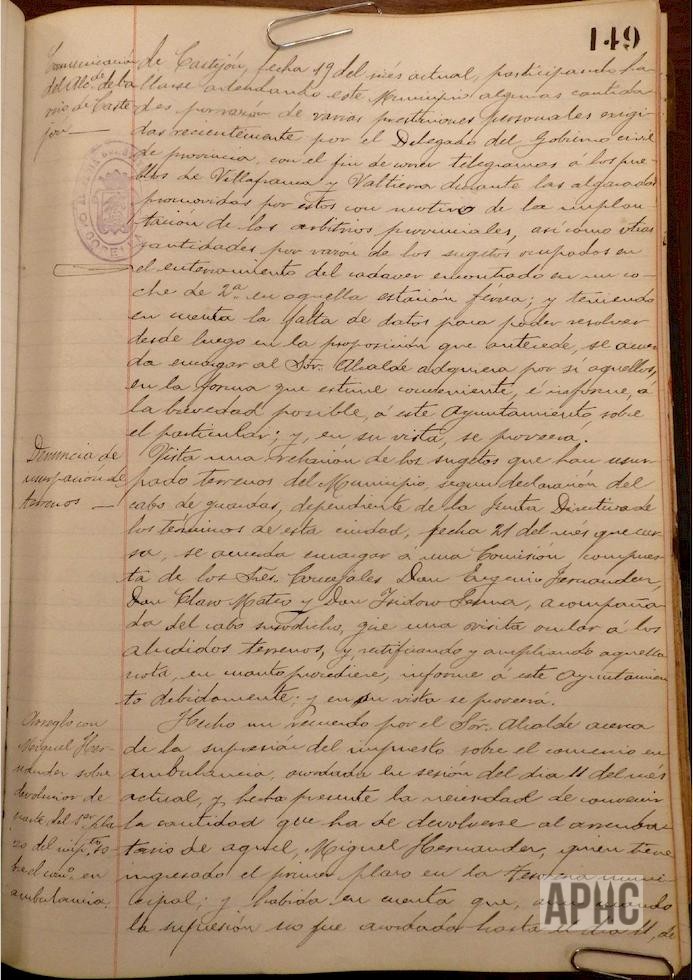 149
Comunicación
del Alc.de de ba
rrio de Caste
jon —
de Castejón, fecha 19 del més actual, participando ha-
llarse adeudando este Municipio algunas cantida
des por razón de varias prestaciones personales exigi
das recientemente por el Delegado del Gobierno civil
de provincia, con el fin de correr telegramas á los pue-
blos de Villafranca y Valtierra durante las algaradas
promovidas por éstos con motivo de la implan-
tación de los arbitrios provinciales, asi como otras
cantidades por razón de los sugetos ocupados en
el enterramiento del cadaver encontrado en un co-
che de 2ª en aquella estación férrea; y teniendo
en cuenta la falta de datos para poder resolver
desde luego en la proposición que antecede, se acuer
da encargar al Sór. Alcalde adquiera por sí aquellos,
en la forma que estime conveniente, é informe, á
la brevedad posible, á este Ayuntamiento sobre
el particular; y, en su vista, se proveera.
Denuncia de
usurpación de
terrenos —
Vista una relación de los sugetos que han usur-
pado terrenos del Municipio, segun declaración del
cabo de guardas, dependiente de la Junta Directiva de
los términos de esta ciudad, fecha 21 del més que cur-
sa, se acuerda encargar á una Comisión compues-
ta de los Sres. Concejales Don Eugenio Fernandez,
Don Claro Mateo y Don Isidoro Sesma, acompaña-
da del cabo susodicho, gire una visita ocular á los
aludidos terrenos, y rectificando y ampliando aquella
nota, en cuanto procediere, informe á este Ayuntamien
to debidamente; y en su vista se proveerá.
Arreglo con
Miguel Her-
nandez sobre
devolucion de
parte del 1er pla-
zo del imp.to so-
bre el com.o en
ambulancia.
Hecho un recuerdo por el Sór. Alcalde acerca
de la supresión del impuesto sobre el comercio en
ambulancia, acordada en sesión del dia 11 del més
actual, y hecha presente la necesidad de convenir
la cantidad que ha de devolverse al arrenda-
tario de aquel, Miguel Hernandez, quien tiene
ingresado el primer plazo en la Tesoreria muni
cipal; y habida en cuenta que, aun cuando
la supresión no fue acordada hasta el dia 11, de
CORELLA
APHC